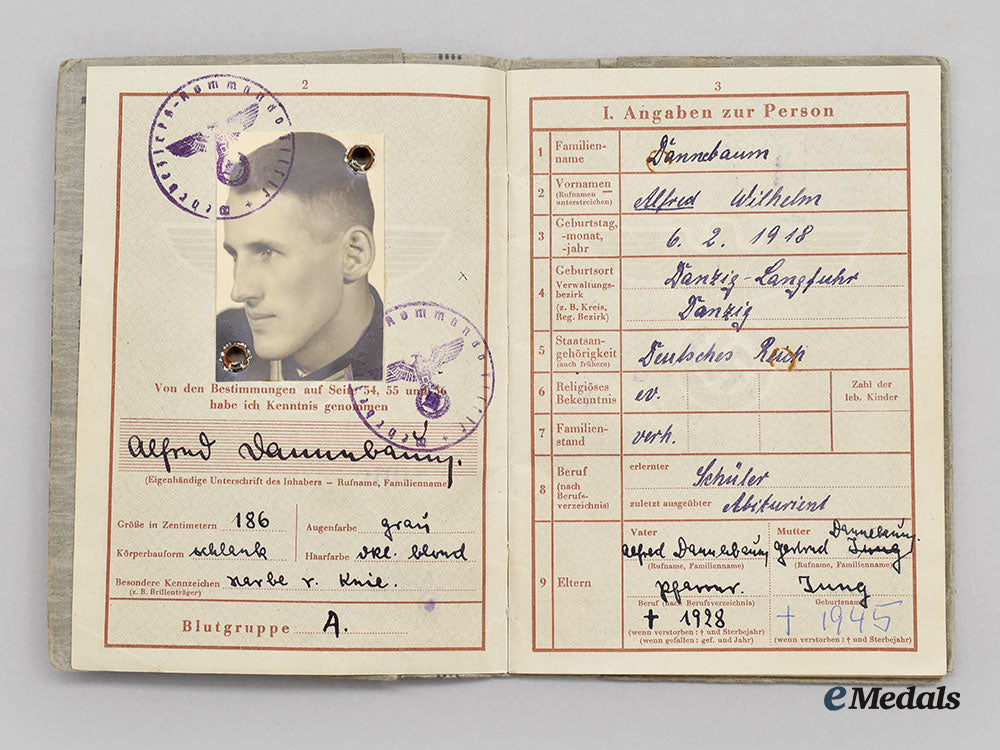 2
Wehrbezirks-Kommando
Von den Bestimmungen auf Seite 54, 55 und 56
habe ich Kenntnis genommen
Alfred Dannebaum.
(Eigenhändige Unterschrift des Inhabers – Rufname, Familienname)
Größe in Zentimetern 186 Augenfarbe grau
Körperbauform schlank Haarfarbe dkl. blond
Besondere Kennzeichen Narbe r. Knie.
(z. B. Brillenträger)
Blutgruppe A.
3
I. Angaben zur Person
1 Familienname Dannebaum
2 Vornamen (Rufnamen unterstreichen) Alfred Wilhelm
3 Geburtstag, -monat, -jahr 6. 2. 1918
4 Geburtsort Danzig-Langfuhr
Verwaltungsbezirk (z. B. Kreis, Reg. Bezirk) Danzig
5 Staatsangehörigkeit (auch frühere) Deutsches Reich
6 Religiöses Bekenntnis ev. Zahl der leb. Kinder
7 Familienstand verh.
8 Beruf (nach Berufsverzeichnis) erlernter Schüler
zuletzt ausgeübter Abiturient
9 Eltern
Vater
Alfred Dannebaum
(Rufname, Familienname)
Pfarrer.
Beruf (nach Berufsverzeichnis)
† 1928
(wenn verstorben: † und Sterbejahr)
(wenn gefallen: gef. und Jahr)
Mutter Dannebaum.
Gertrud Jung
(Rufname, Familienname)
Jung
Geburtsname
† 1945
(wenn verstorben: † und Sterbejahr)
eMedals